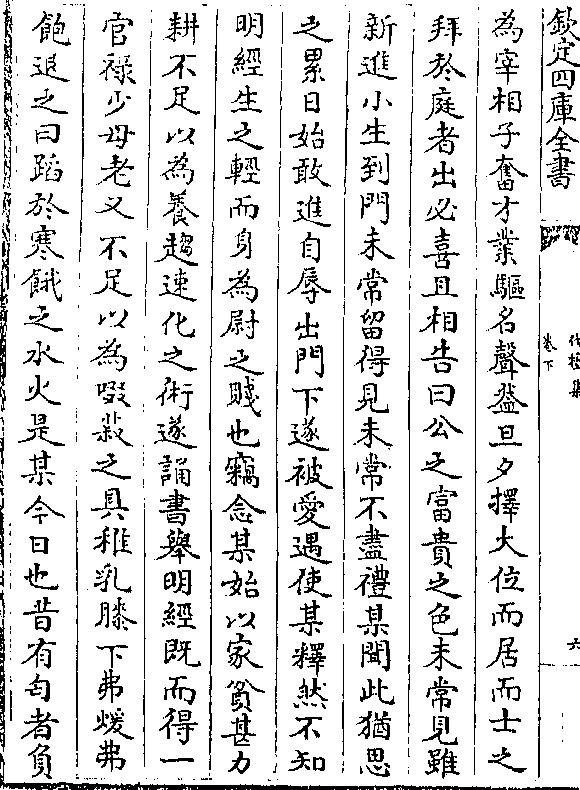 欽定四庫全書
伐檀集
卷下
六
為宰相子奮才業驅名聲盎旦夕擇大位而居而士之
拜於庭者出必喜且相告曰公之富貴之色未常見雖
新進小生到門未常留得見未常不盡禮某聞此猶思
之累日始敢進自辱出門下遂被愛遇使某釋然不知
明經生之輕而身為尉之賤也竊念某始以家貧甚力
耕不足以為養趨速化之術遂誦書舉明經既而得一
官祿少母老又不足以為啜菽之具稚乳膝下弗煖弗
飽退之曰蹈於寒餓之水火是某今日也昔有匄者負